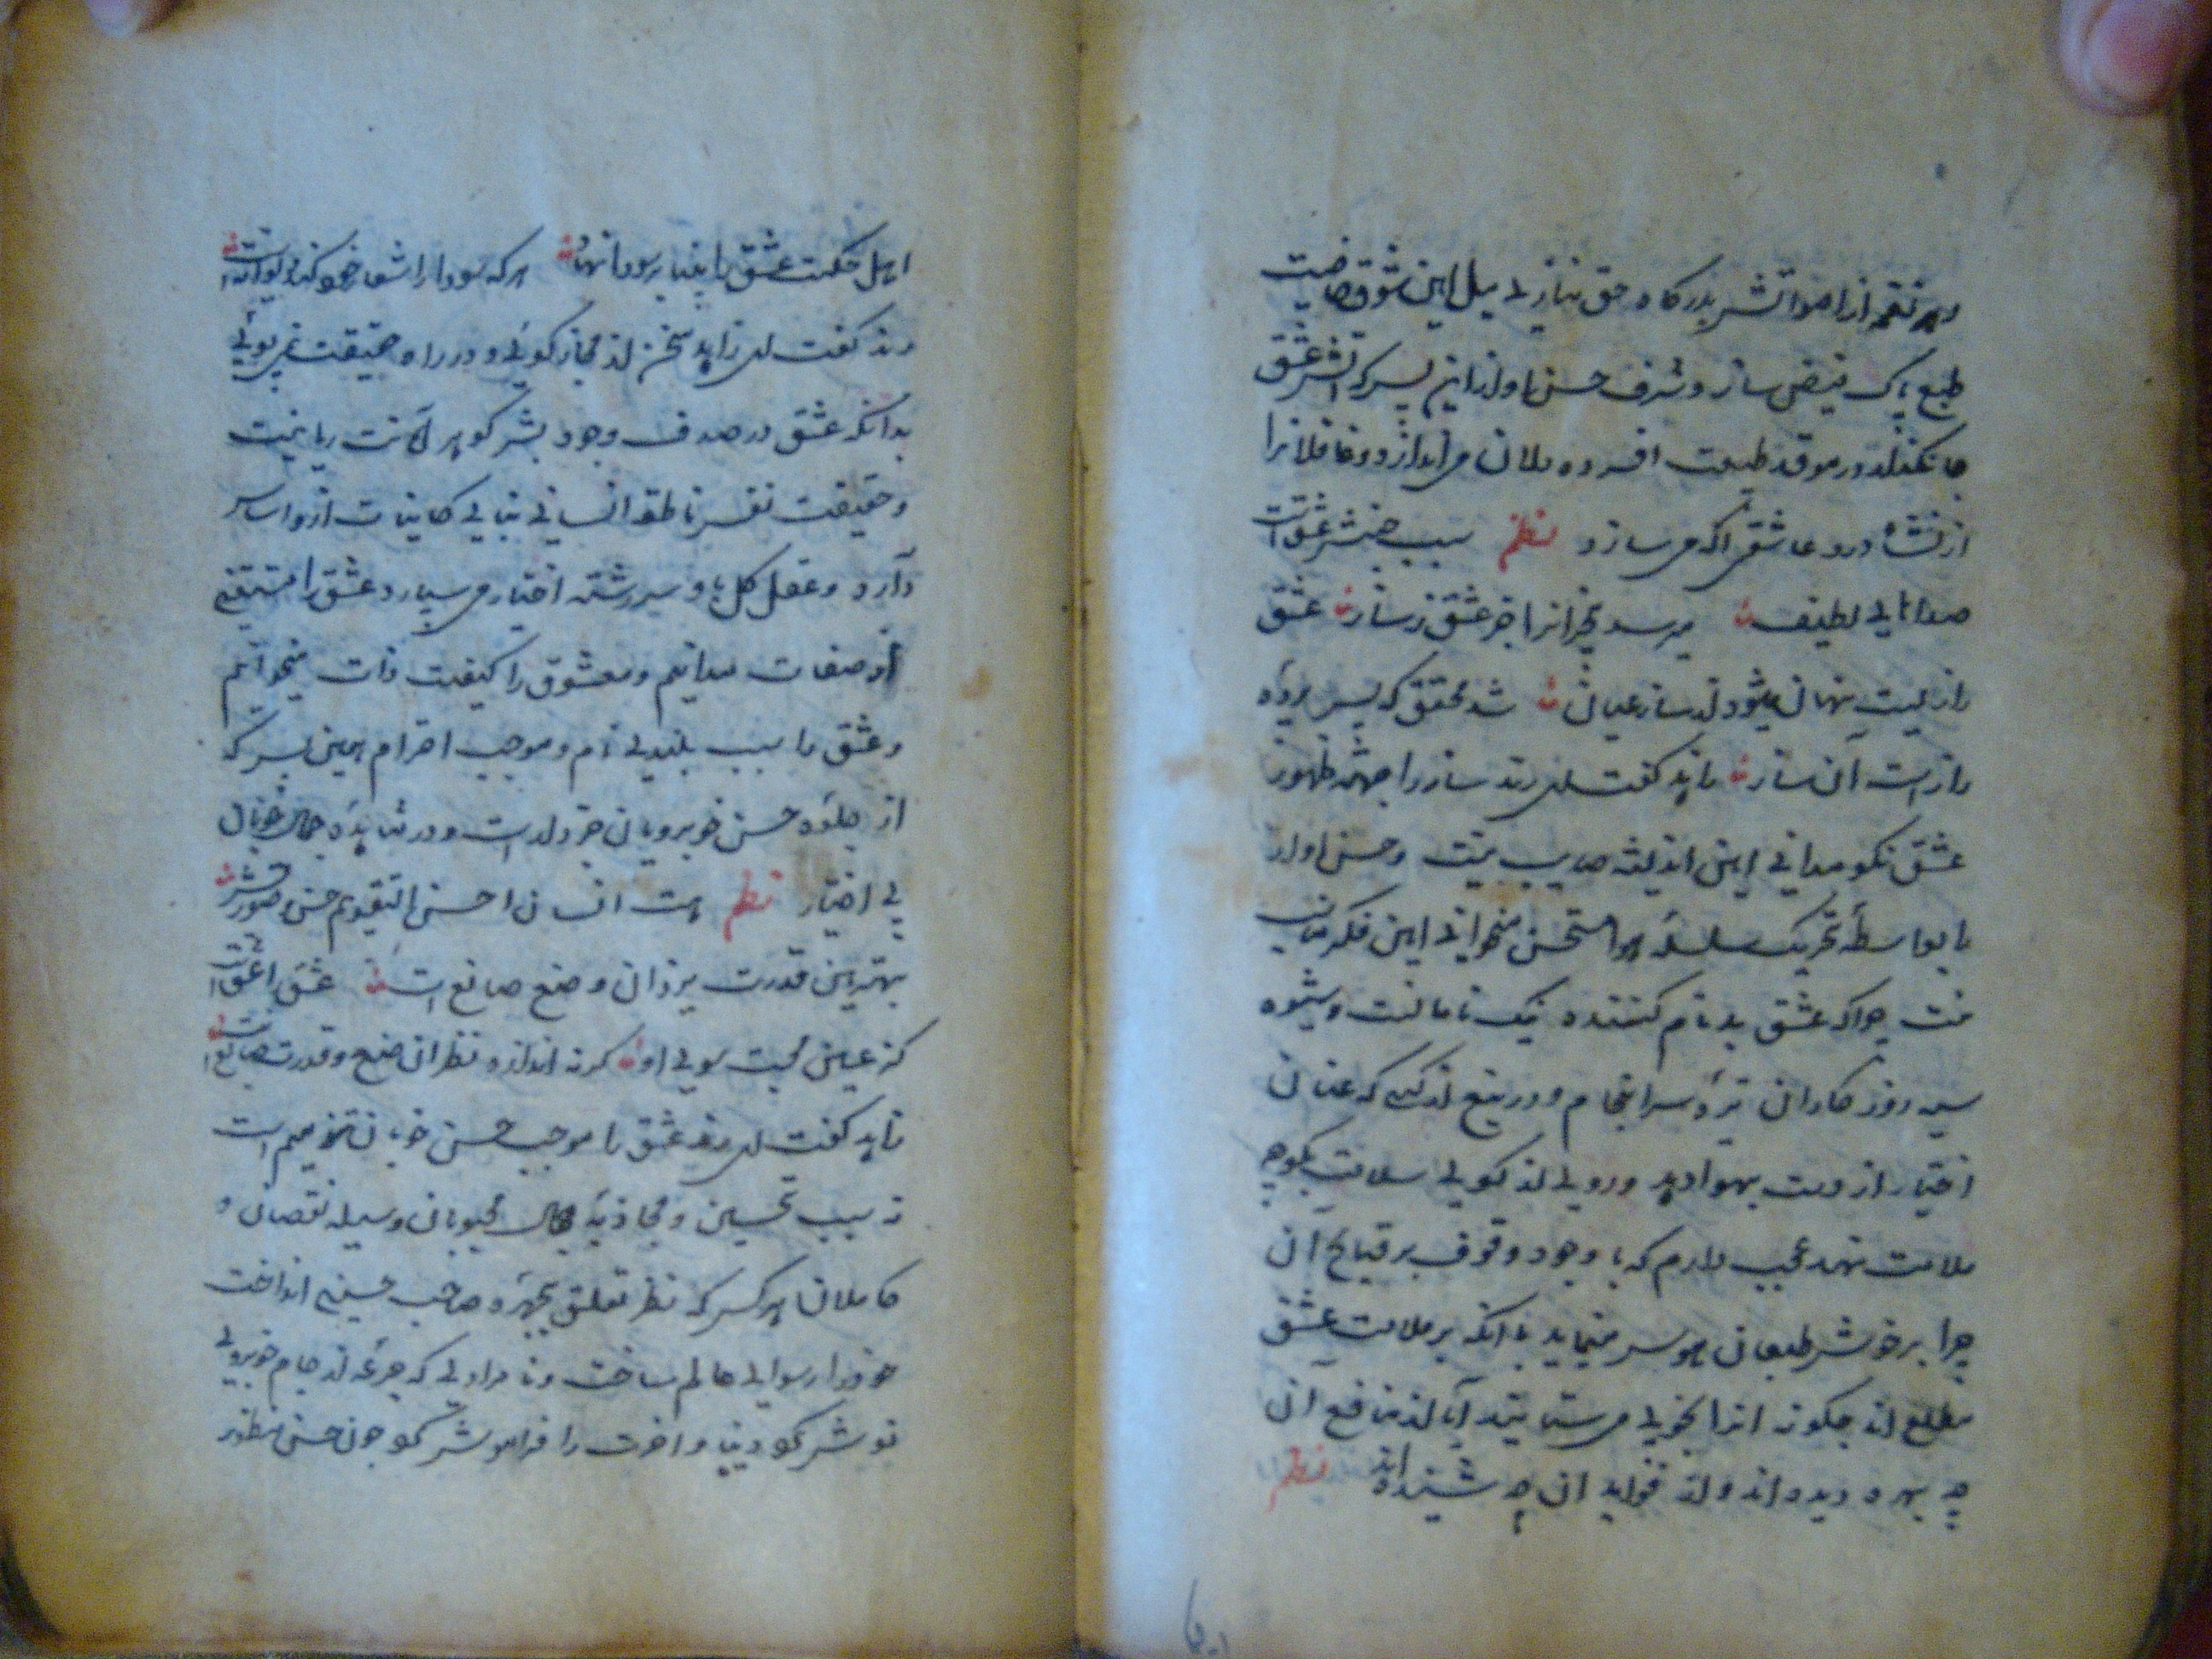 و هر نغمه از اصواتش بدرگاه حق نیازی میل این شوق خاصیت
طبع پاک فیض ساز و شرف حسن را ولد این پس که آتش عشق
جانگداز در موقد طبیعت افسرده دلان می اندازد و غافلانرا
از نشاه درد عاشقی آکه می سازد نظم سبب جنبش عشق است
صداهای لطیف میرسد بیخبرانرا خبر عشق ز ساز عشق
رازیست نهان میشود از ساز عیان شد محقق که پس پرده
رازست آن ساز زاهد کفت ای رند ساز را جهة ظهور
عشق نکو میدانی این اندیشه صایب نیست و حسن اواز
را بواسطه تحریک سلسله هوا مستحسن میخوانی این فکر مناسب
نیست چرا که عشق بدنام کننده نیک نامانست و شیوه
سیه روزکاران تیره سرانجام و دریغ از کسی که عنان
اختیار از دست بهوا دهد و روی از کوی سلامت بکوچه
ملامت نهد عجب دارم که با وجود وقوف بر قبایح آن
چرا بر خوش طبعان هوس مینماید با آنکه بر ملامت عشق
مطلع اند چکونه انرا بخوبی می ستایند آیا از منافع آن
چه بهره دیده اند و از فواید آن چه شنیده اند نظم
اهل حکمت عشق را بنیاد بر سودا نهاد هر که سودا را شعار خود کند دیوانه است
رند کفت ای زاهد سخن از مجاز کوئی و در راه حقیقت نمی پوئی
بدانکه عشق در صدف وجود بشر کوهر امانت ربانیست
و حقیقت نفس ناطقه انسانی بنای کاینات ازو اساس
دارد و عقل کل باو سر رشته اختیار می سپارد عشق را
از صفات میدانیم و معشوق را کیفیت ذات میخوانیم
و عشق را سبب بلندی نام و موجب احترام همین بس که
از جلوه حسن خوبرویان خبردار است و در مشاهده جمال خوبان
بی اختیار نظم هست انسان احسن التقویم حسن صورتش
بهترین قدرت یزدان و صنع صانع است عشق را عشق است
کز عین محبت سوی او کرنه اندازد نظر ان صنع و قدرت ضایع است
زاهد کفت ای رند عشق را موجب حسن خوبان تخم غم است
نه سبب تحسین و مجاذبه جمال محبوبان وسیله نقصان و
کاملان هر کس که نظر تعلق بچهره صاحب حسنی انداخت
خود را رسوای عالم ساخت و نامرادی که جرعه از جام خوبرویی
نوش کرد دنیا و اخرت را فراموش کرد چون حسن منظور